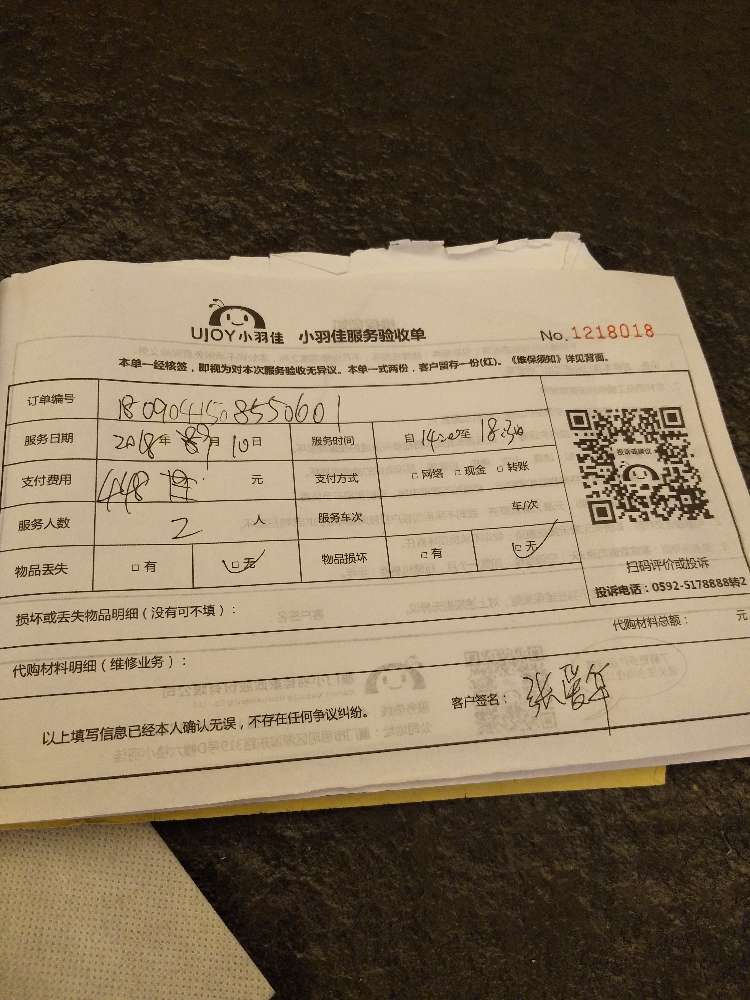 UJOY小羽佳 小羽佳服务验收单 No. 1218018
本单一经核签，即视为对本次服务验收无异议。本单一式两份，客户留存一份(红)。《维保须知》详见背面。
订单编号 1809041508550601
服务日期 2018年 9月 10日 服务时间 自 14:00至 18:30
支付费用 448 元 支付方式 □ 网络 □ 现金 □ 转账
服务人数 2 人 服务车次 车/次
投诉或建议
物品丢失 □ 有 □ 无 物品损坏 □ 有 □ 无
扫码评价或投诉
投诉电话：0592-5178888转2
损坏或丢失物品明细（没有可不填）：
代购材料总额： 元
代购材料明细（维修业务）：
以上填写信息已经本人确认无误，不存在任何争议纠纷。 客户签名： 张